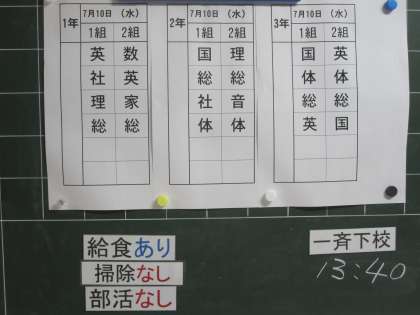 1年 7月10日 (水)
1組 2組
英 数
社 英
理 家
総 総
2年 7月10日 (水)
1組 2組
国 理
総 総
社 音
体 体
3年 7月10日 (水)
1組 2組
国 英
体 体
総 総
英 国
給食あり
掃除なし
部活なし
一斉下校
13:40